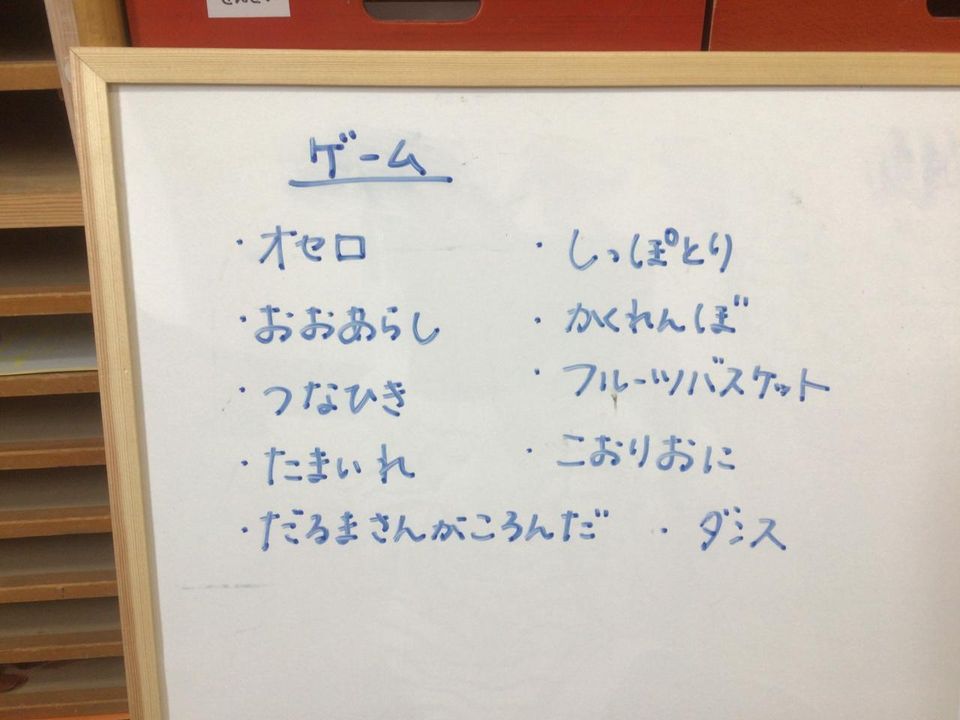 ゲーム
・オセロ
・おおあらし
・つなひき
・たまいれ
・だるまさんがころんだ
・しっぽとり
・かくれんぼ
・フルーツバスケット
・こおりおに
・ダンス